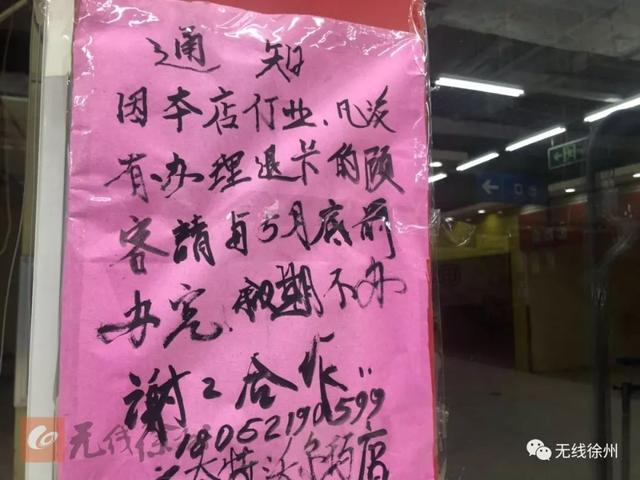 通知
因本店停业.凡没
有办理退卡的顾
客請每5月底前
办完.过期不办
谢2合作
18052190599
大特沃尔玛店
无线徐州
无线徐州